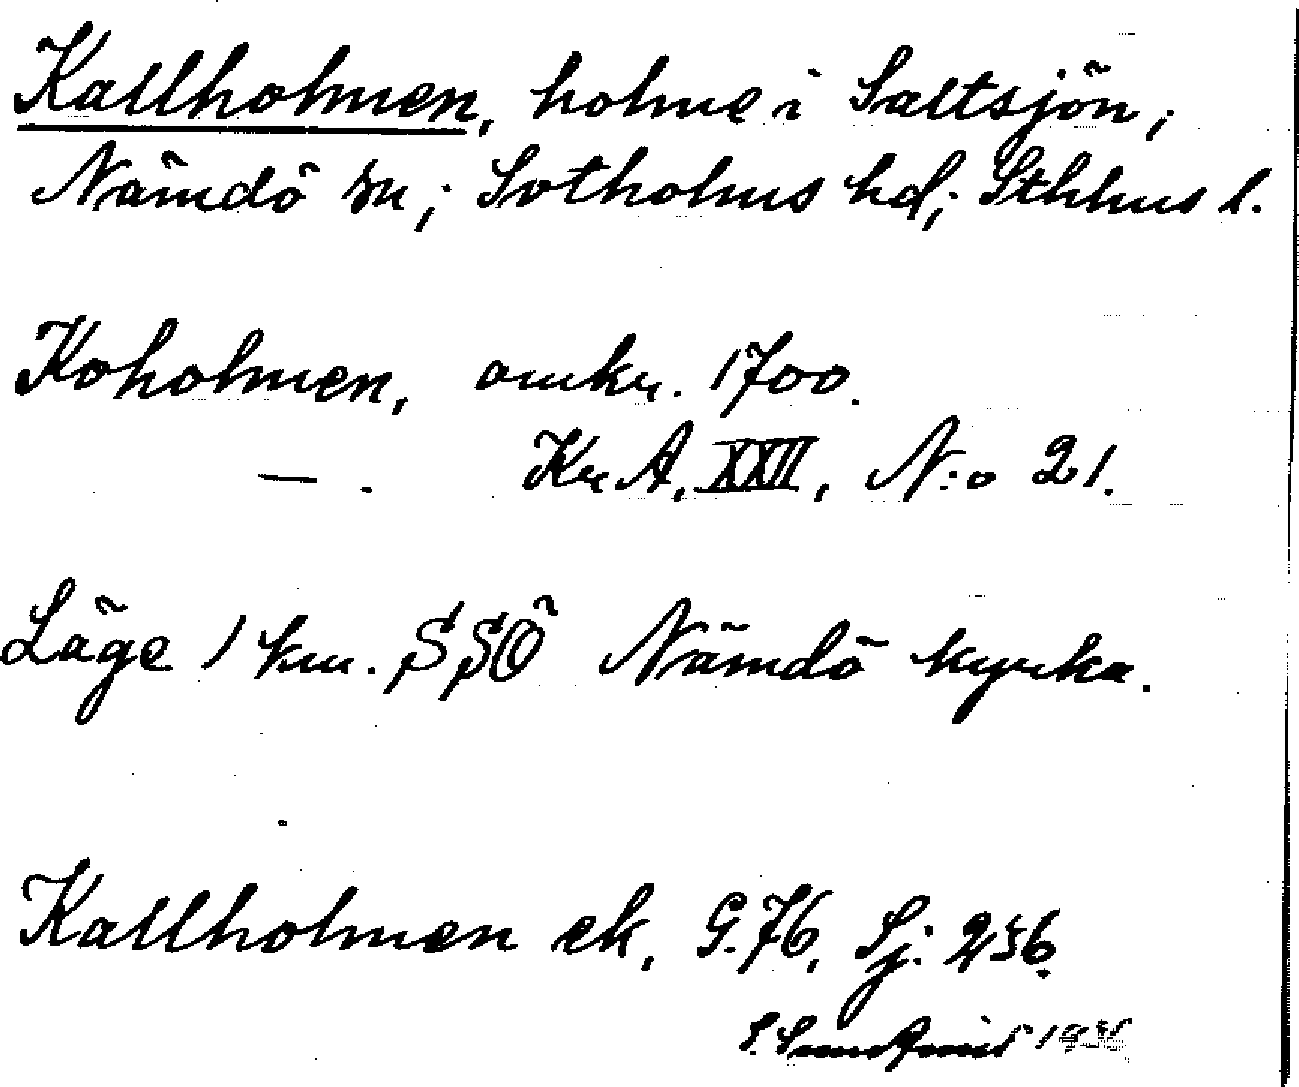 Kallholmen, holme i Saltsjön;
Nämdö sn; Sotholms hd; Sthlms l.
Koholmen, omkr. 1700.
— . Kr A, XXII, N:o 21.
Läge 1 km. SSÖ Nämdö kyrka.
Kallholmen ek, G. 76, Sj: 256.